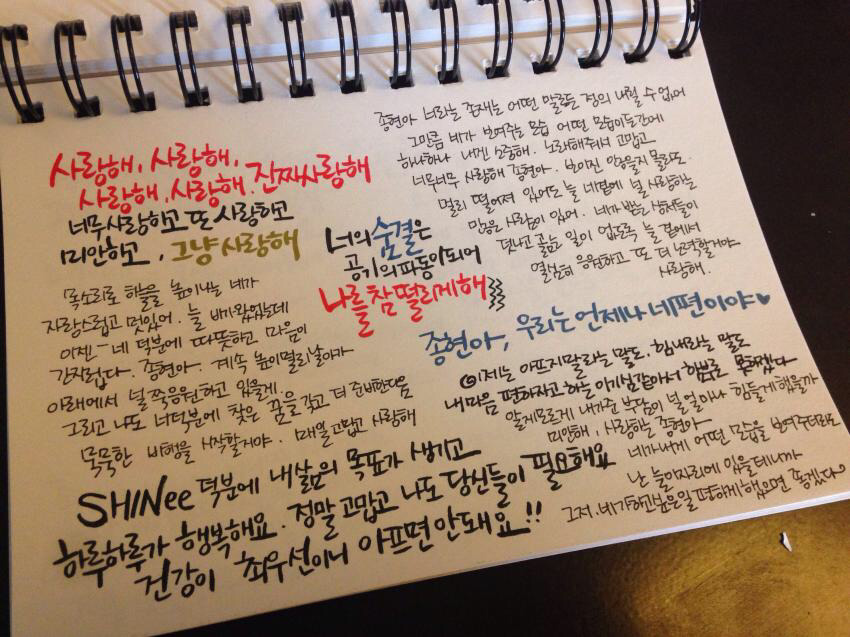 사랑해, 사랑해,
사랑해, 사랑해. 진짜사랑해
너무사랑하고 또 사랑하고
미안하고, 그냥사랑해
목소리로 하늘을 높이나는 네가
자랑스럽고 멋있어. 늘 바래왔었는데
이젠 네 덕분에 따뜻하고 마음이
간지럽다. 종현아. 계속 높이멀리날아가
아래에서 널 쭉응원하고 있을게
그리고 나도 너덕분에 찾은 꿈을갖고 더 준비한다음
묵묵한 비행을 시작할거야. 매일고맙고 사랑해
SHINee 덕분에 내삶의 목표가 생기고
하루하루가 행복해요. 정말고맙고 나도 당신들이 필요해요
건강이 최우선이니 아프면안돼요!!
너의숨결은
공기의파동이되어
나를참떨리게해
종현아 너라는 존재는 어떤 말로든 정의 내릴 수 없어
그만큼 네가 보여주는 모습 어떤 모습이든간에
하나하나 내겐 소중해. 노래해줘서 고맙고
너무너무 사랑해 종현아. 보이진 않을지 몰라도
멀리 떨어져 있어도 늘 네곁에 널 사랑하는
많은 사람이 있어. 네가 받는 상처들이
덧나고 곪는 일이 없도록 늘 곁에서
열심히 응원하고 또 더 노력할거야
사랑해.
종현아, 우리는 언제나 네편이야♥
이저는 아프지말라는 말도, 힘내라는 말도
내마음 편하자고 하는 이기심같아서 함부로 못하겠다
알게모르게 내가준 부담이 널 얼마나 힘들게 했을까
미안해, 사랑하는 종현아
네가내게 어떤 모습을 보여주더라도
난 늘이자리에 있을테니까
그저 네가하고싶은일 편하게 했으면 좋겠다